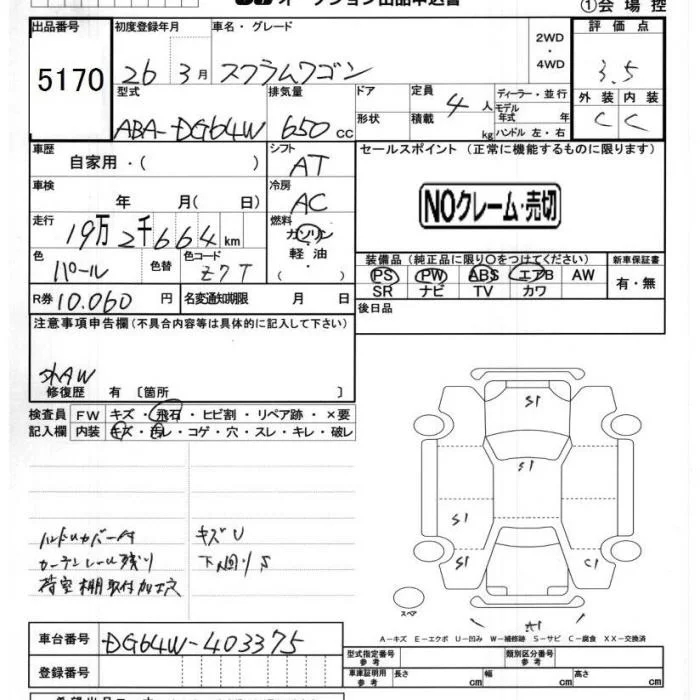 ①会 場 控
出品番号 初度登録年月 車名・グレード 2WD・4WD 評 価 点
5170 26 3月 スクラムワゴン 3.5
型式 排気量 ドア 定員 4人 ディーラー・並行 外 装 内 装
ABA-DG64W 650 cc 形状 積載 kg モデル年式 年 C C
ハンドル 左・右
車歴 自家用・( ) シフト AT セールスポイント (正常に機能するものに限ります)
車検 年 月( 日) 冷房 AC NOクレーム・売切
走行 19万2千664 km 燃料 ガソリン・軽油・( )
色 パール 色替 色コード Z7T
装備品(純正品に限り〇をつけてください) 新車保証書
PS PW ABS エアB AW 有・無
SR ナビ TV カワ
R券 10.060 円 名変通知期限 月 日
後日品
注意事項申告欄(不具合内容等は具体的に記入して下さい)
外AW
修復歴 有 〔箇所 〕
検査員 FW キズ・飛石・ヒビ割・リペア跡・×要
記入欄 内装 キズ・汚レ・コゲ・穴・スレ・キレ・破レ
S1
S1
S1
S1 C1
A1
ハンドルカバー付 キズU
カーテンレール残り 下回りS
荷室棚取付加工穴
スペア
A-キズ E-エクボ U-凹み W-補修跡 S-サビ C-腐食 XX-交換済
車台番号 DG64W-403375
型式指定番号 参考 類別区分番号 参考
登録番号 車庫証明用 参考 長さ cm 幅 cm 高さ cm